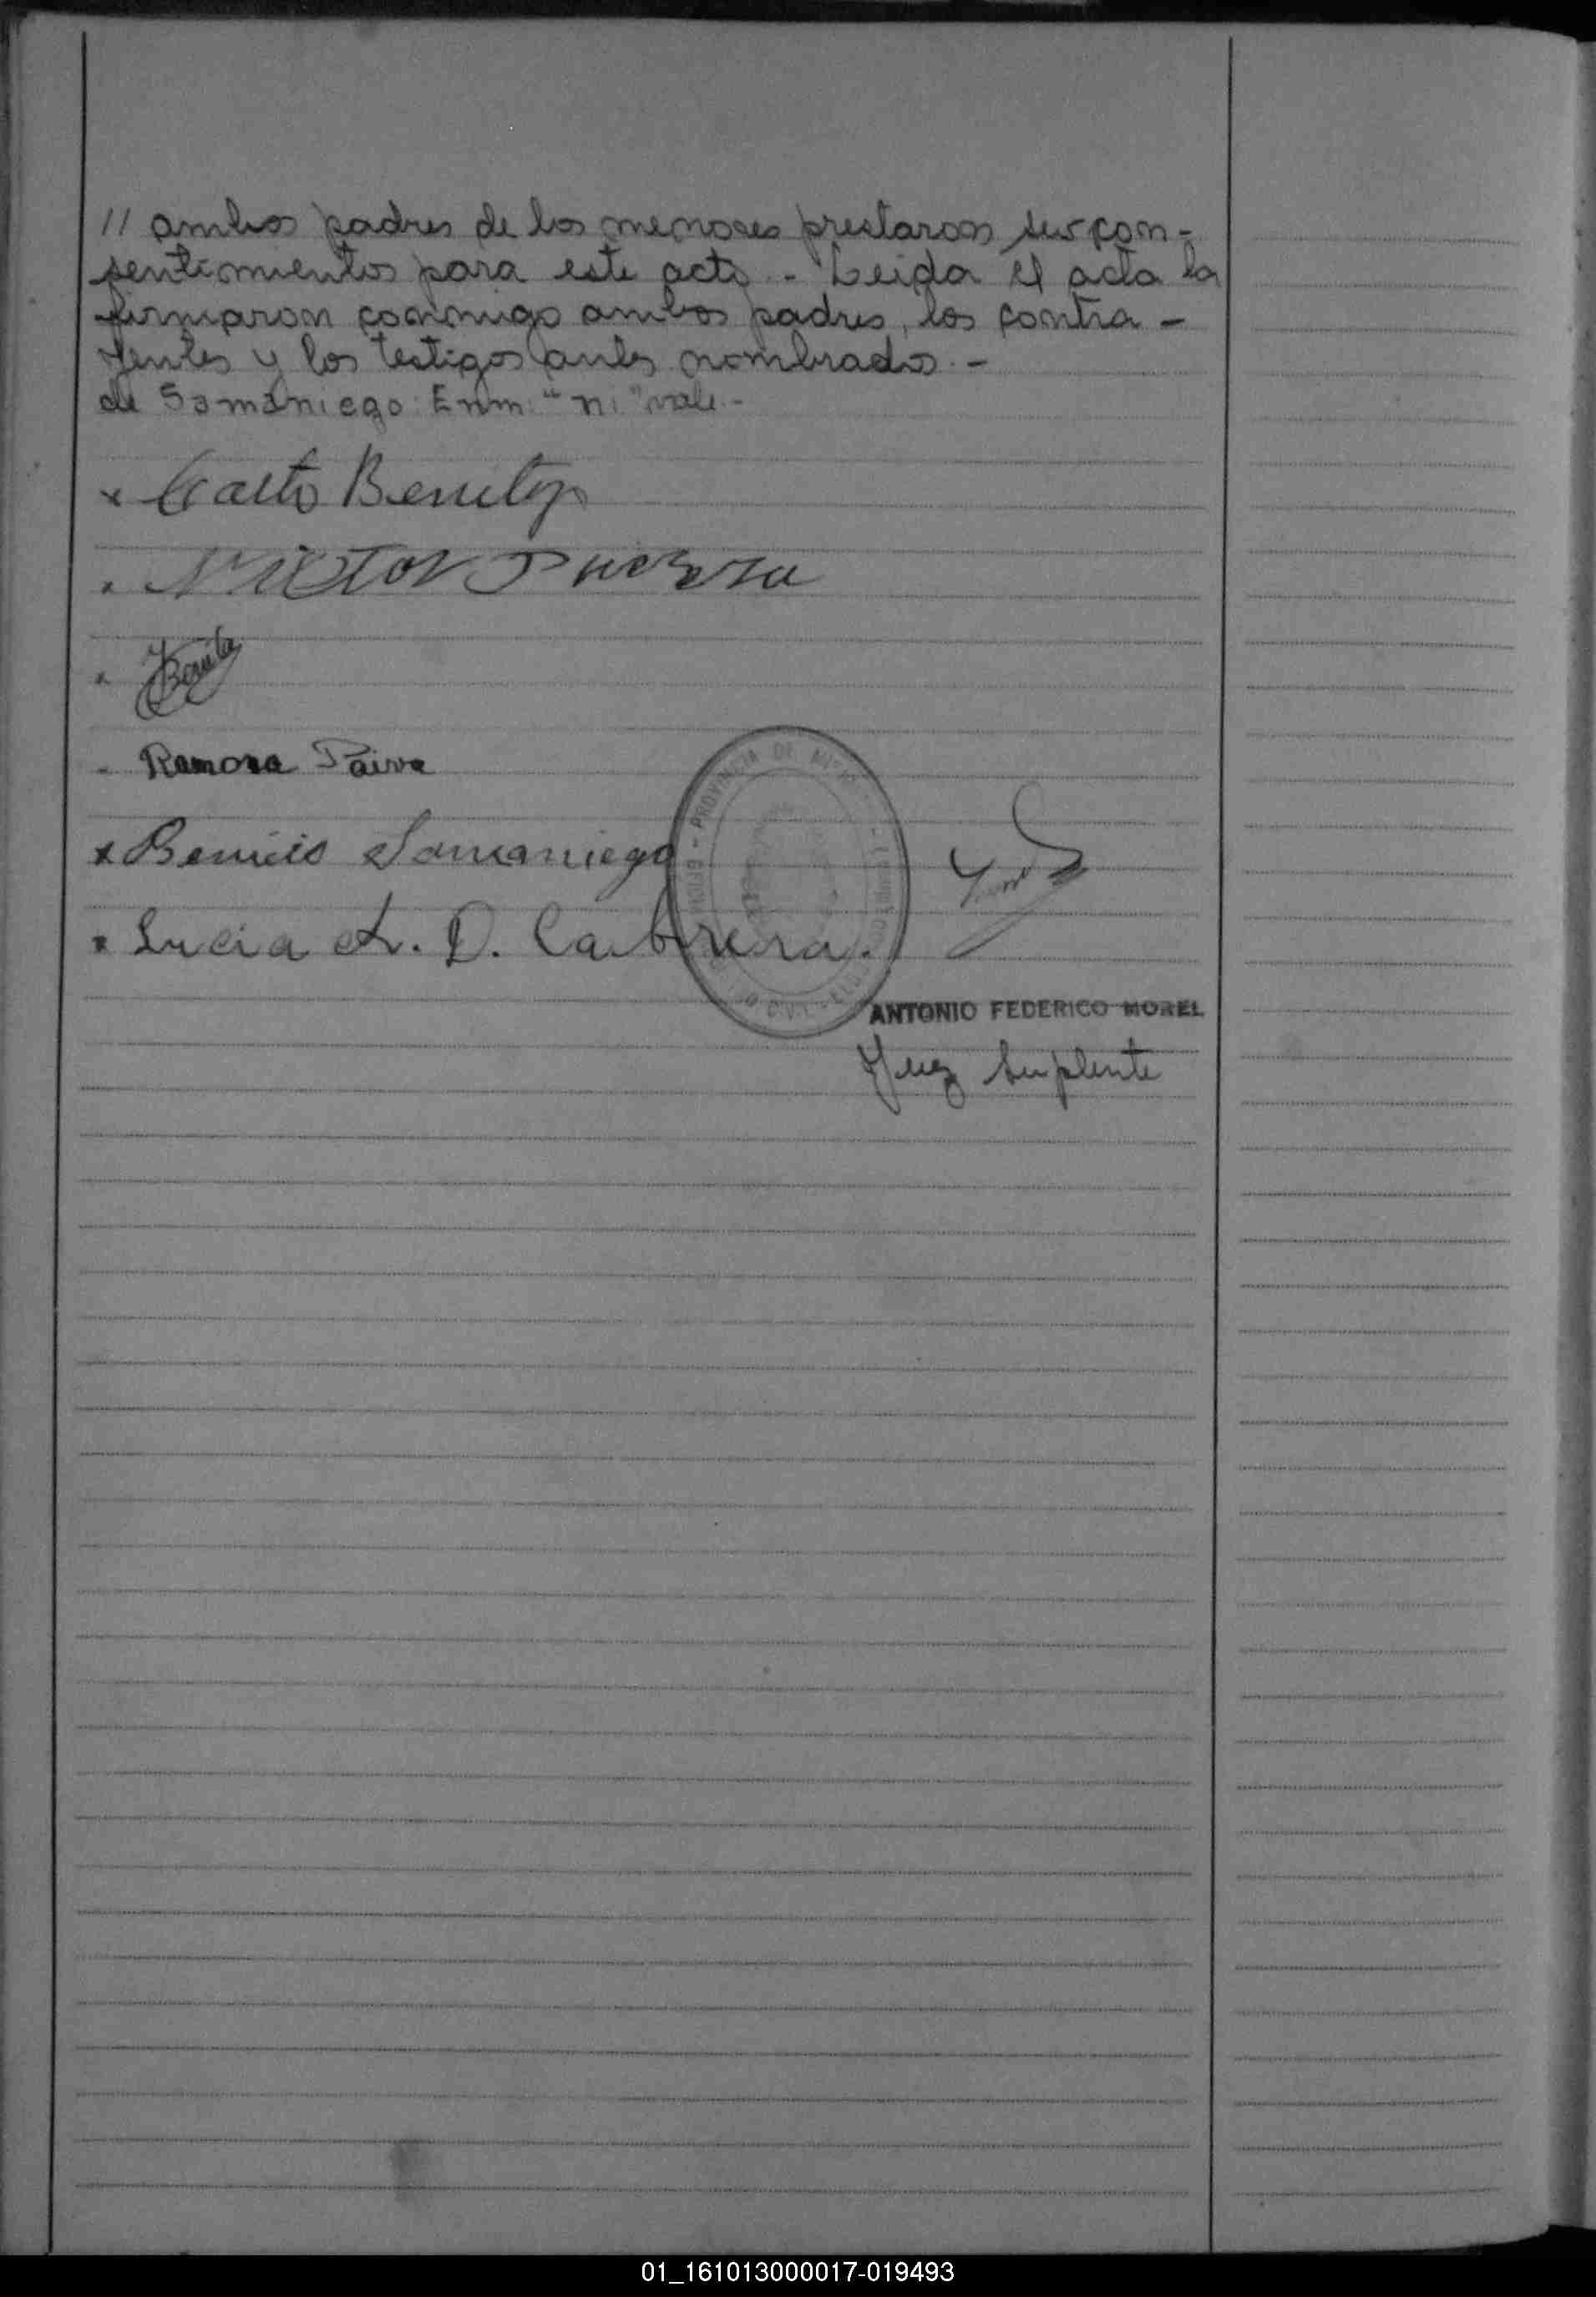 // ambos padres de los menores prestaron sus con-
sentimientos para este acto.- Leida el acta la
firmaron conmigo ambos padres, los contra-
yentes y los testigos antes nombrados.-
de Samaniego: Enm: "ni" vale.-
x Benitez
x
x Benitez
- Ramona Paiva
x Benicio Samaniego
x Lucia A. D. Cabrera.
PROVINCIA DE
ANTONIO FEDERICO MOREL
Juez Suplente
01_161013000017-019493